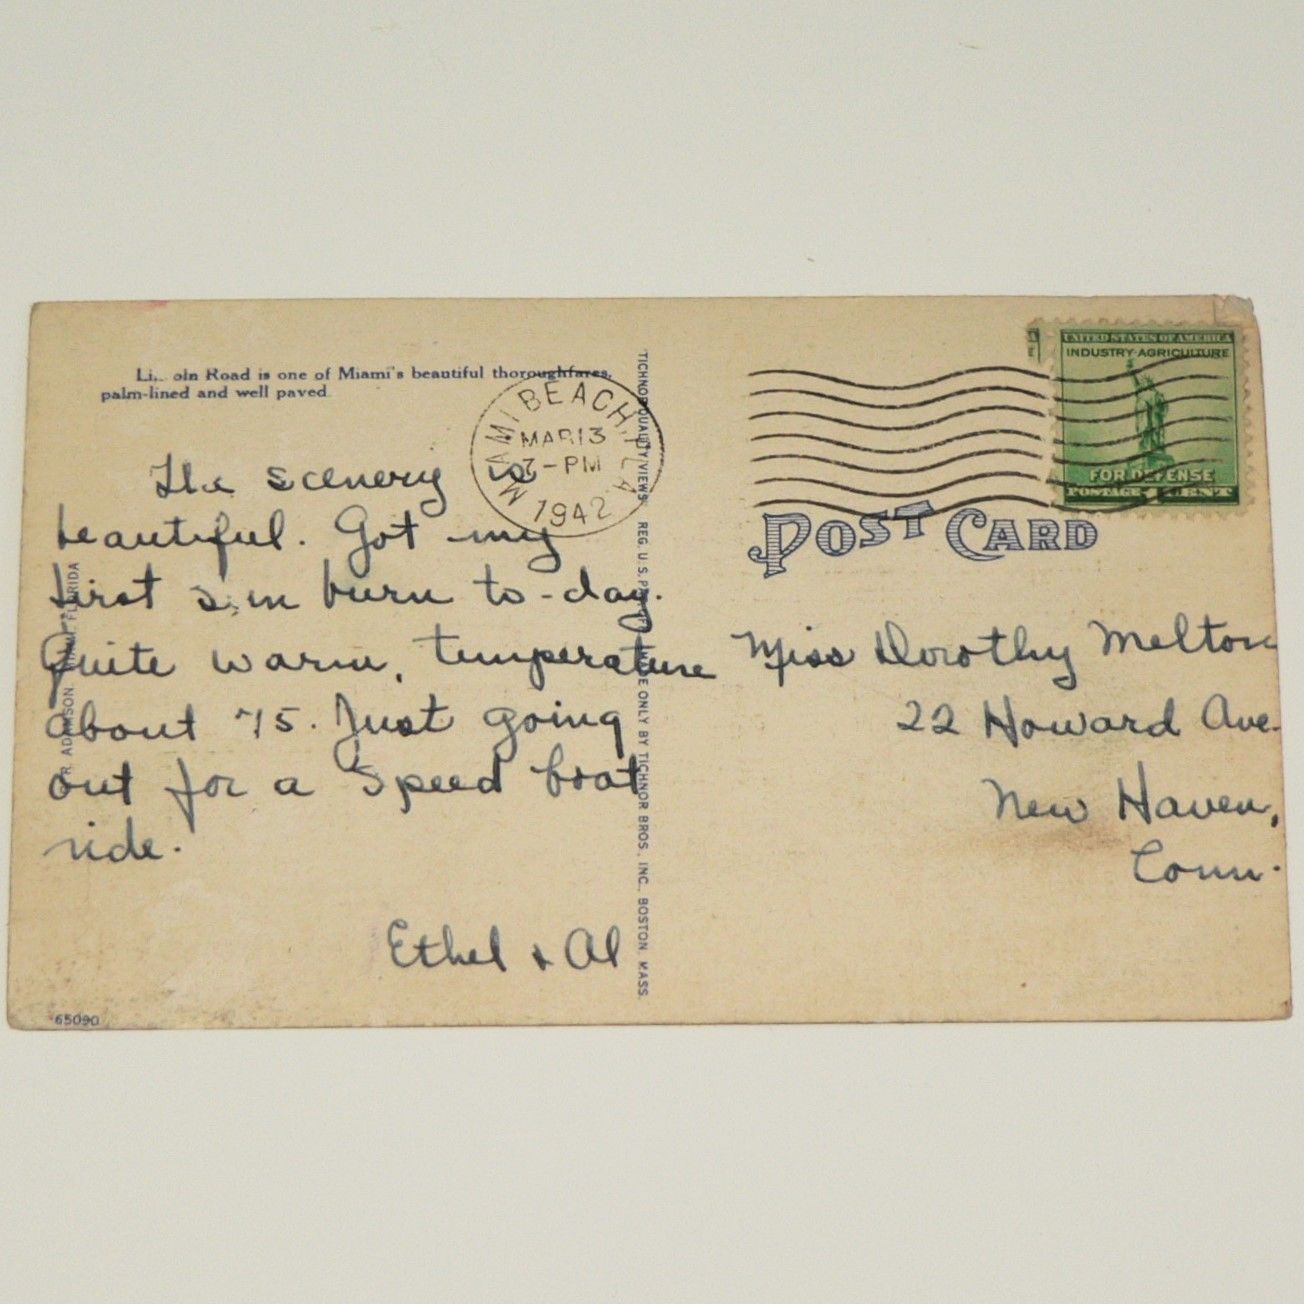 Li  oln Road is one of Miami's beautiful thoroughfares,
palm-lined and well paved.
The scenery is
beautiful. Got my
first sun burn to-day.
Quite warm, temperature
about 75. Just going
out for a Speed boat
ride.
Ethel + Al
65090
MIAMI, FLORIDA
MIAMI BEACH, FLA
MAR 13
7-PM
1942
TICHNOR QUALITY VIEWS REG. U. S. MADE ONLY BY TICHNOR BROS., INC., BOSTON, MASS.
UNITED STATES OF AMERICA
INDUSTRY·AGRICULTURE
FOR DEFENSE
POSTAGE 1 CENT
POST CARD
Miss Dorothy Melton
22 Howard Ave.
New Haven,
Conn.